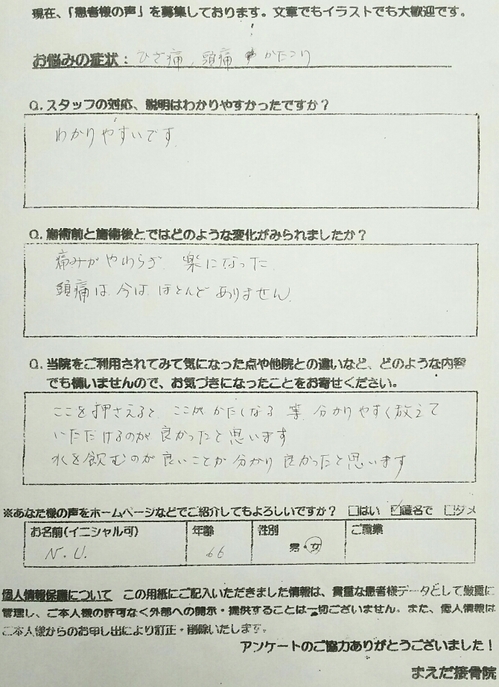 現在、「患者様の声」を募集しております。文章でもイラストでも大歓迎です。
お悩みの症状：ひざ痛、頭痛 かたこり
Q.スタッフの対応、説明はわかりやすかったですか？
わかりやすいです
Q.施術前と施術後とではどのような変化がみられましたか？
痛みがやわらぎ 楽になった
頭痛は 今は ほとんど ありません
Q.当院をご利用されてみて気になった点や他院との違いなど、どのような内容
でも構いませんので、お気づきになったことをお寄せください。
ここを押さえると ここが かたくなる 事 分かりやすく教えて
いただけるのが 良かったと思います
水を飲むのが 良いことが 分かり 良かったと思います
※あなた様の声をホームページなどでご紹介してもよろしいですか？ □はい ☑匿名で □ダメ
お名前(イニシャル可) 年齢 性別 ご職業
N.U. 66 男・女
個人情報保護について この用紙にご記入いただきました情報は、貴重な患者様データとして厳重に
管理し、ご本人様の許可なく外部への開示・提供することは一切ございません。また、個人情報は
ご本人様からのお申し出により訂正・削除いたします。
アンケートのご協力ありがとうございました！
まえだ接骨院